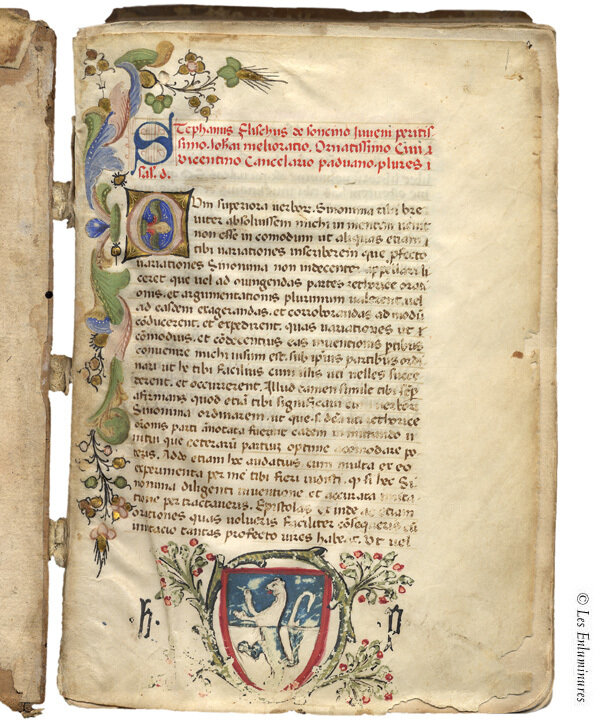 STephanus Flischus de soncino Juveni peritis
simo. Joh̅ai melioratio. Ornatissimo Civi
Vicentino Cancelario paduano. plures
sal. d.
CUm superiora verbor. Sinonima tibi bre
viter absoluissem michi in mentem venit
non esse in comodum ut aliquas etiam
tibi variationes inscriberem que profecto
variationes Sinonima non indecenter appellari li
ceret que vel ad eiungendas partes rethorice orati
onis. et argumentationis plurimum valerent. vel
ad easdem exagerandas. et corroborandas ad modu̅
co̅ducerent. et expedirent. quas variationes ut
co̅modius. et co̅decentius eas inventionis p̅tibus
convenire michi visum est. sub ipsis partibus ordi
navi ut he tibi facilius cum illis uti velles succu
rerent. et occurrerent. Illud tamen simile tibi
affirmans quod etia̅ tibi significavi cum verbor
Sinonima ordinarem. ut que
parti
que ceteraru̅ partiu̅ optime acomodare po
teris. Addo etiam hec audatius cum multa ex eo
experimenta per me tibi fieri vidisti. q̅ si hec Si
nonima diligenti inventione et accurata
tione per tractaveris. Epistolas et inde ac etiam
orationes quas volueris faciliter co̅sequeris
tantas profecto vires habent. Ut vel
h
© Les Enluminures